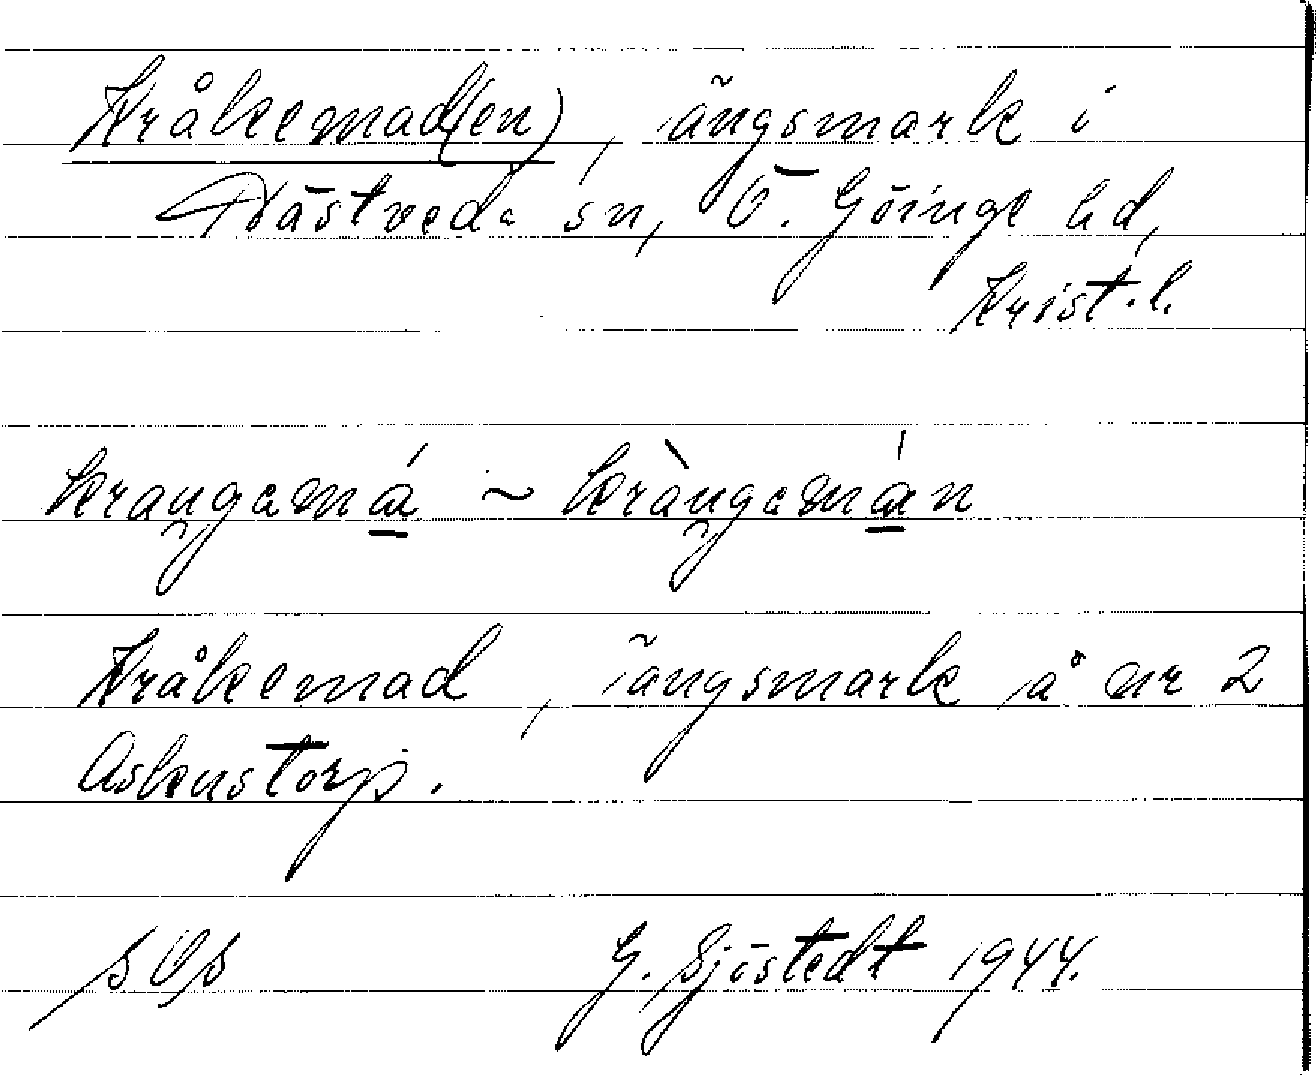 Kråkemad(en), ängsmark i
Västveds sn, Ö. Göinge hd,
Krist. l.
kraugamá ~ kràugamán
Kråkemad, ängsmark å nr 2
Askustorp.
SOS G. Sjöstedt 1944.